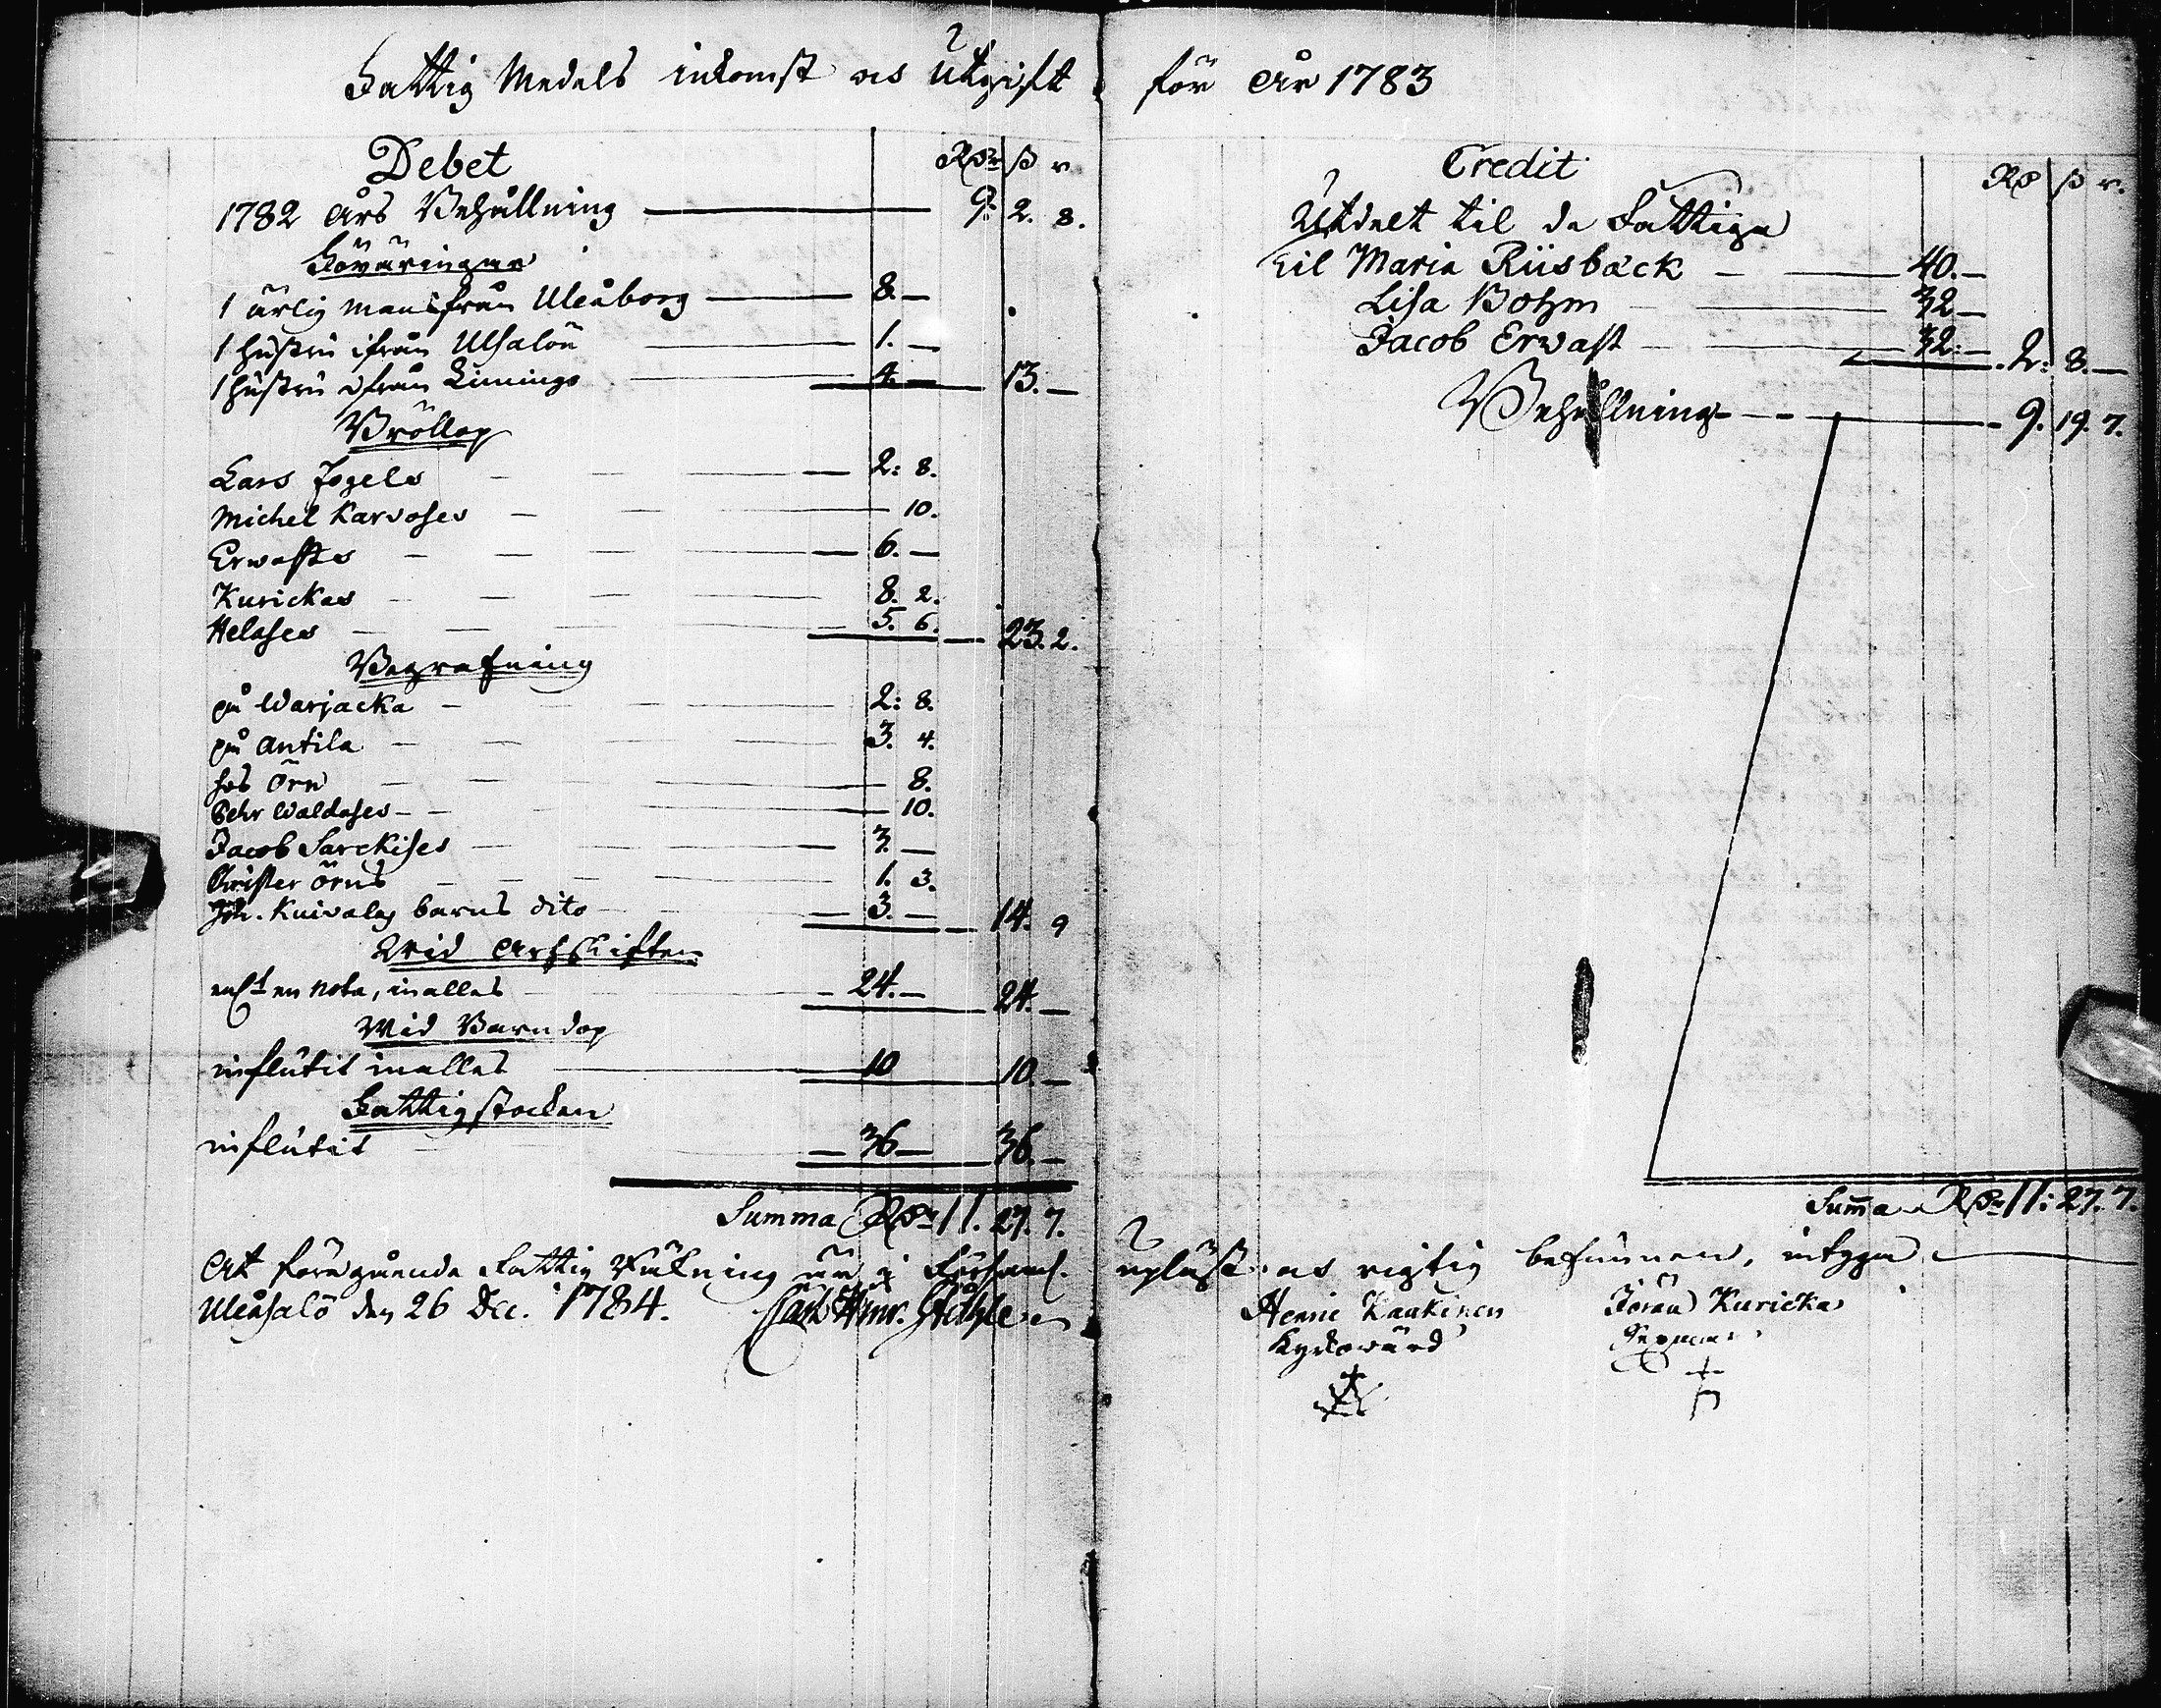 Fattig Medels inkomst och Utgift för År 1783
Debet Rdr ß r
1782 Års Behållning 9. 2. 8.
Föräringar
1 ärlig man ifrån Uleåborg 8. —
1 hustru ifrån Ulsalön 1. —
1 hustru ifrån Limingo 4. — 13. —
Bröllop
Lars Jogels 2: 8.
Michel Karvoses 10.
Erwastes 6. —
Kurickas 8. 2.
Helases 5. 6. 23. 2.
Begrafning
på Warjacka 2: 8.
på Antila 3. 4.
hos Örn 8.
Pehr Waldases 10.
Jacob Sarckises 3. —
Christer Örns 1. 3.
Joh. Kuivalas barns dito 3. — 14. 9
Wid Arfskiften
en nota, in alles 24. — 24. —
Wid Barndop
influtit in alles 10 10. —
Fattigstocken
influtit 36 — 36. —
Summa Rdr 11. 27. 7.
Credit Rd ß r.
Utdelt til de Fattiga
til Maria Riisbäck 40. —
Lisa Bohm 32 —
Jacob Erwast 32: — 2: 8. —
Behållning 9. 19. 7.
Summa Rdr 11: 27. 7.
At föregående Fattig Räkning är i upläst och rigtig befunnen, intyga
Uleåsalo den 26 Dec. 1784. Carl Henr.
Henric Kaukinen Jöran Kuricka
Kyrkowärd Sexman